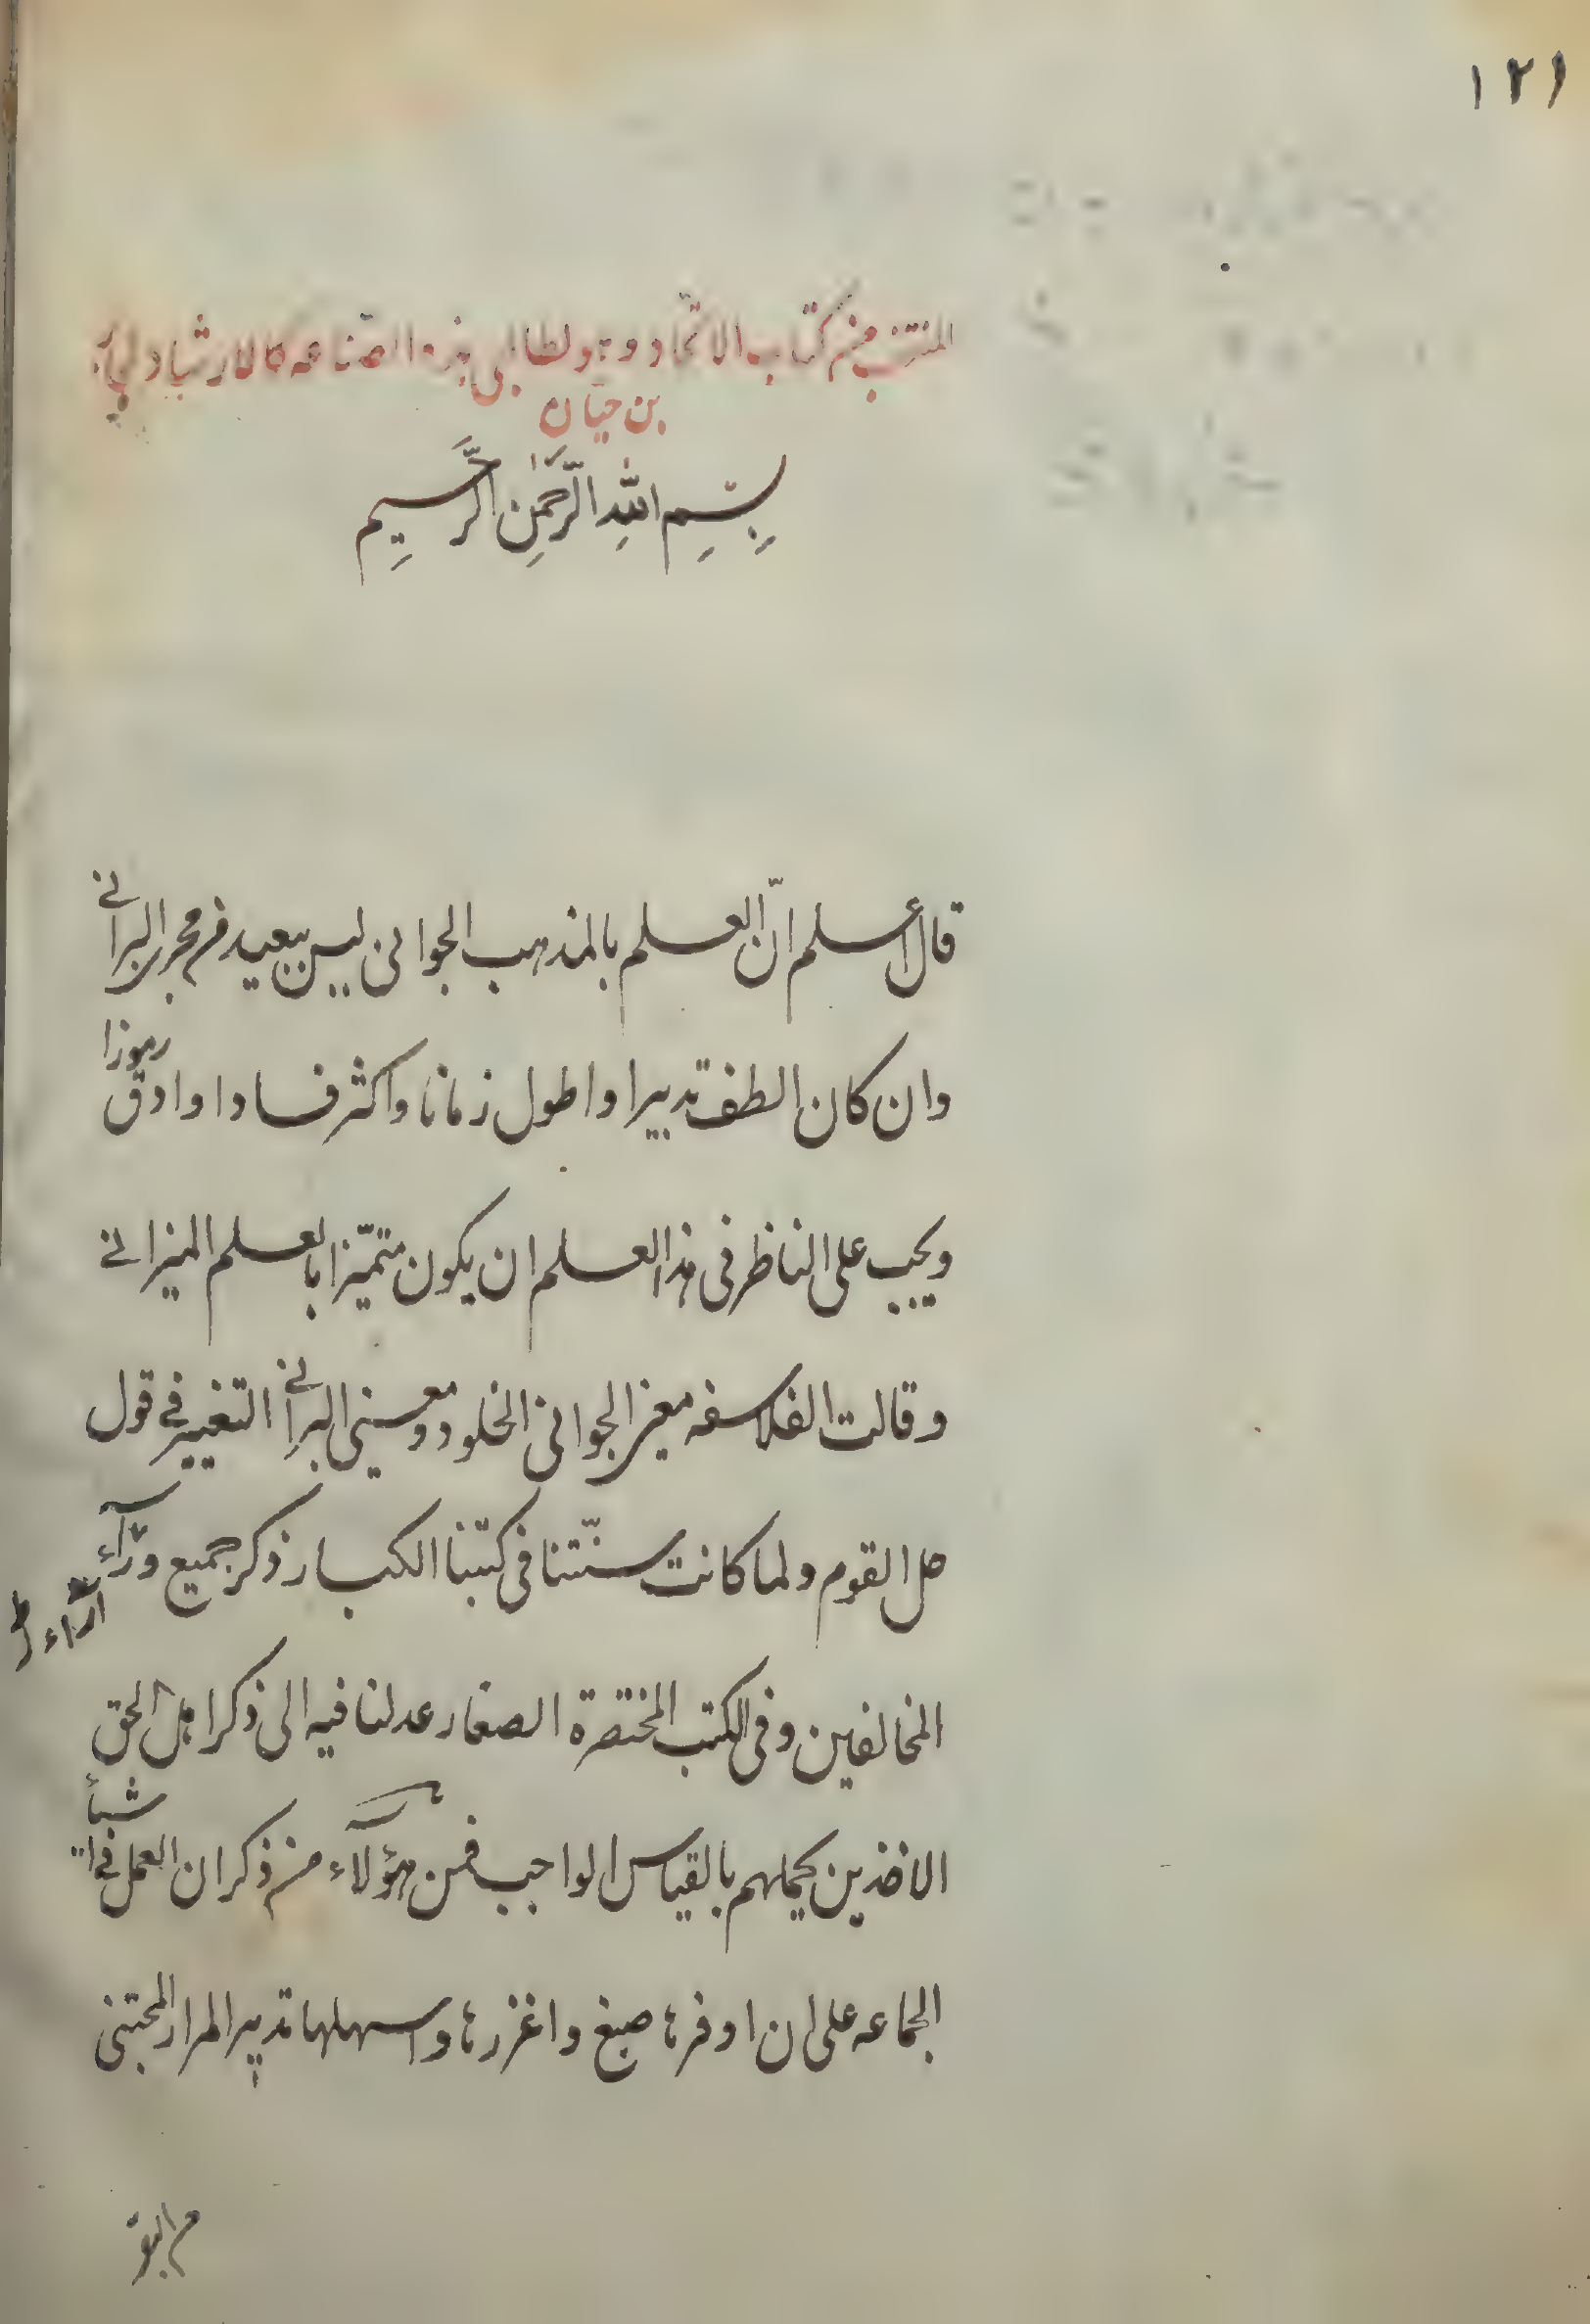 ١٢١
المنتخب من كتاب الاتحاد وهو لطالبى هذه الصناعه كالارشاد لجابر
بن حيان
بِسْمِ اللهِ الرَّحْمٰنِ الرَّحِيمِ
قال أعلم انّ العلم بالمذهب الجوانى ليس ببعيد من مجرى البرانى
وان كان الطف تدبيرا واطول زمانا واكثر فسادا وادق رموزا
ويجب على الناظر فى هذا العلم ان يكون متميّزا بالعلم الميزانى
وقالت الفلاسفه معنى الجوانى الخلود ومعنى البرانى التغيير فى قول
كل القوم ولما كانت سنّتنا فى كتبنا الكبار ذكر جميع ورآء
آرآء ظ
المخالفين وفى الكتب المختصرة الصغار عدلنا فيه الى ذكر اهل الحق
الاخذين بالقياس الواجب فمن هؤلآء من ذكر ان العمل من
الجماعه على ان اوفرها صبغ واغزرها واسهلها تدبير المرار